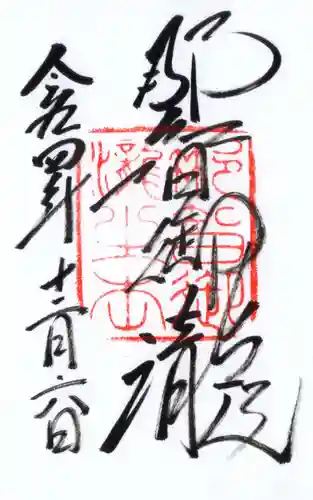 那智御瀧
令和四年十二月六日